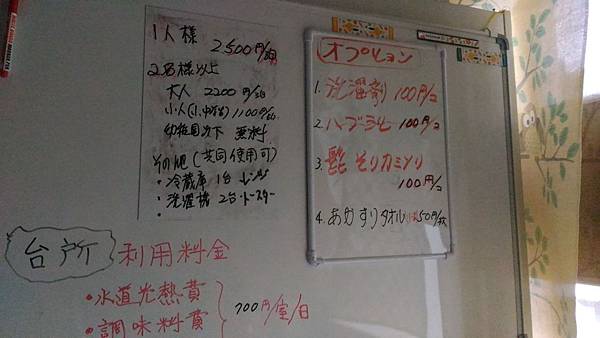 1人様
2500円/泊
2名様以上
大人 2200円/泊
小人(小中学) 1100円/泊
幼稚園以下 無料
その他(共同使用可)
・冷蔵庫 1台 レンジ
・洗濯機 2台・トースター
オプション
1. 洗濯剤 100円/コ
2. ハブラシ 100円/コ
3. 髭そりカミソリ
100円/コ
4. あかすりタオル 50円/枚
台所 利用料金
・水道光熱費
・調味料費
700円/室/日